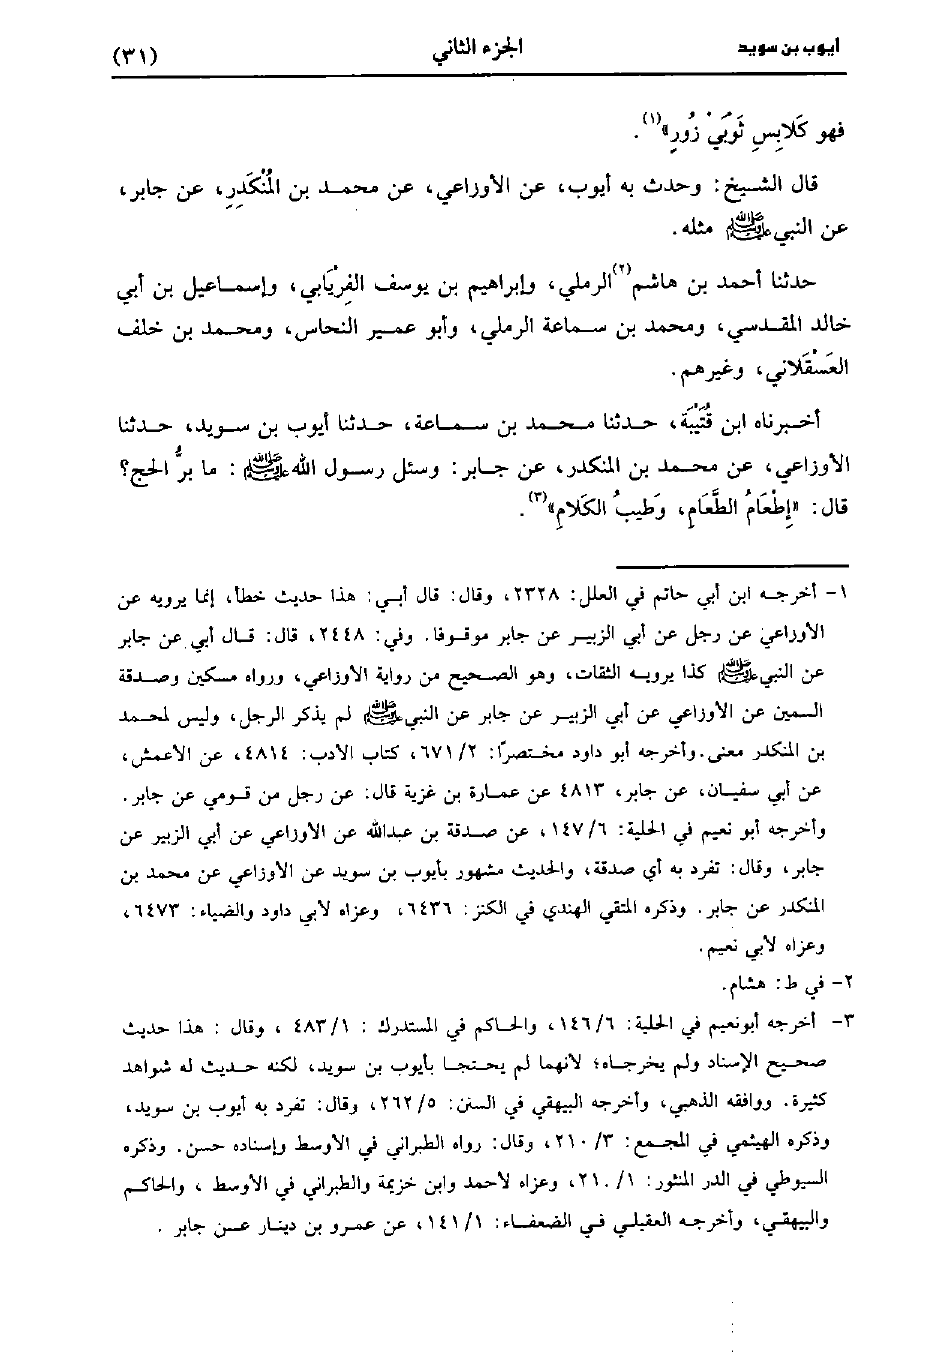 أيوب بن سويد الجزء الثاني (٣١)
فهو كَلابِسِ ثَوبَيْ زُورٍ»(١).
قال الشيخ: وحدث به أيوب، عن الأوزاعي، عن محمد بن المُنْكَدِرِ، عن جابر،
عن النبي ﷺ مثله.
حدثنا أحمد بن هاشم(٢) الرملي، وإبراهيم بن يوسف الفِرْيَابي، وإسماعيل بن أبي
خالد المقدسي، ومحمد بن سماعة الرملي، وأبو عمير النحاس، ومحمد بن خلف
العَسْقَلاني، وغيرهم.
أخبرناه ابن قُتَيْبَة، حدثنا محمد بن سماعة، حدثنا أيوب بن سويد، حدثنا
الأوزاعي، عن محمد بن المنكدر، عن جابر: وسئل رسول الله ﷺ: ما برُّ الحج؟
قال: «إِطْعَامُ الطَّعَامِ، وَطيبُ الكَلامِ»(٣).
١- أخرجه ابن أبي حاتم في العلل: ٢٣٢٨، وقال: قال أبي: هذا حديث خطأ، إنما يرويه عن
الأوزاعي عن رجل عن أبي الزبير عن جابر موقوفا. وفي: ٢٤٤٨، قال: قال أبي عن جابر
عن النبي ﷺ كذا يرويه الثقات، وهو الصحيح من رواية الأوزاعي، ورواه مسكين وصدقة
السمين عن الأوزاعي عن أبي الزبير عن جابر عن النبي ﷺ لم يذكر الرجل، وليس لمحمد
بن المنكدر معنى. وأخرجه أبو داود مختصرًا: ٦٧١/٢، كتاب الأدب: ٤٨١٤، عن الأعمش،
عن أبي سفيان، عن جابر، ٤٨١٣ عن عمارة بن غزية قال: عن رجل من قومي عن جابر.
وأخرجه أبو نعيم في الحلية: ١٤٧/٦، عن صدقة بن عبدالله عن الأوزاعي عن أبي الزبير عن
جابر، وقال: تفرد به أي صدقة، والحديث مشهور بأيوب بن سويد عن الأوزاعي عن محمد بن
المنكدر عن جابر. وذكره المتقي الهندي في الكنز: ٦٤٣٦، وعزاه لأبي داود والضياء: ٦٤٧٣،
وعزاه لأبي نعيم.
٢- في ط: هشام.
٣- أخرجه أبونعيم في الحلية: ١٤٦/٦، والحاكم في المستدرك: ٤٨٣/١، وقال: هذا حديث
صحيح الإسناد ولم يخرجاه؛ لأنهما لم يحتجا بأيوب بن سويد، لكنه حديث له شواهد
كثيرة. ووافقه الذهبي، وأخرجه البيهقي في السنن: ٢٦٢/٥، وقال: تفرد به أيوب بن سويد،
وذكره الهيثمي في المجمع: ٢١٠/٣، وقال: رواه الطبراني في الأوسط وإسناده حسن. وذكره
السيوطي في الدر المنثور: ٢١٠/١، وعزاه لأحمد وابن خزيمة والطبراني في الأوسط، والحاكم
والبيهقي، وأخرجه العقيلي في الضعفاء: ١٤١/١، عن عمرو بن دينار عن جابر.